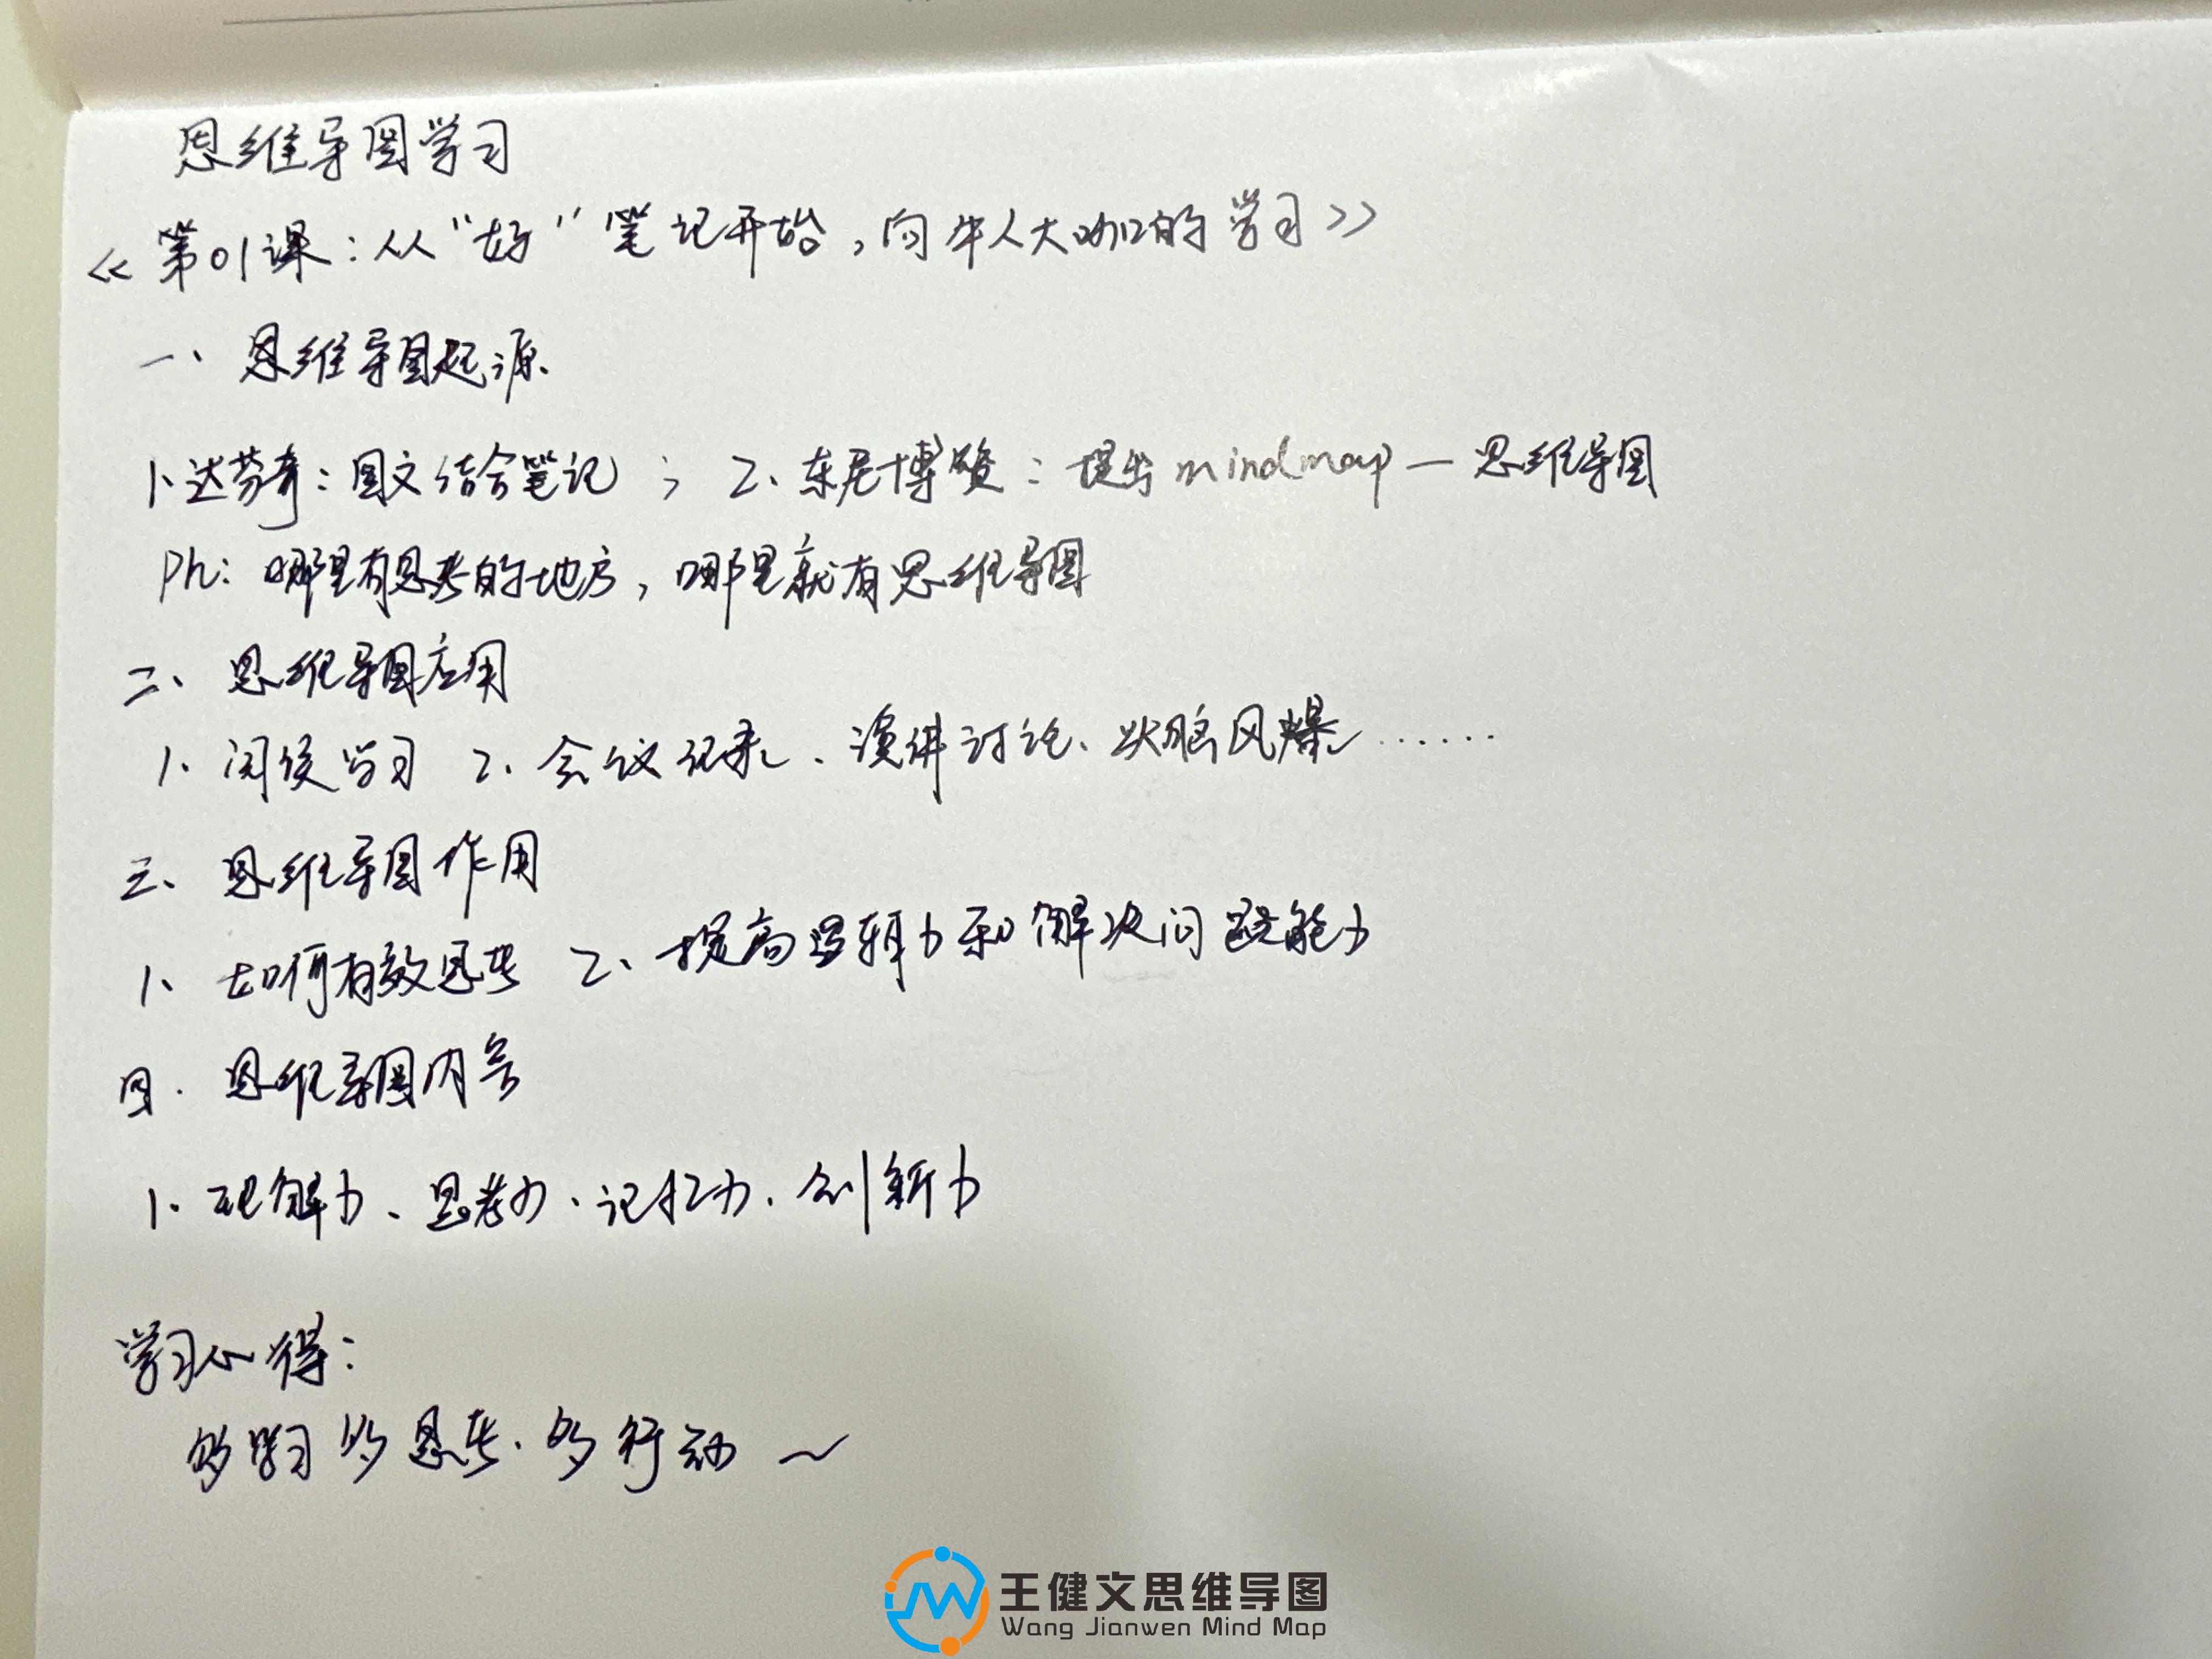 思维导图学习
《第01课：从“好”笔记开始，向牛人大咖的学习》
一、思维导图起源
1、达芬奇：图文结合笔记；2、东尼博赞：提出mindmap—思维导图
Ph：哪里有思考的地方，哪里就有思维导图
二、思维导图应用
1、阅读学习 2、会议记录、演讲讨论、头脑风暴……
三、思维导图作用
1、如何有效思考 2、提高逻辑力和解决问题能力
四、思维导图内容
1、理解力、思考力、记忆力、创新力
学习心得：
多学习多思考、多行动～
王健文思维导图
Wang Jianwen Mind Map